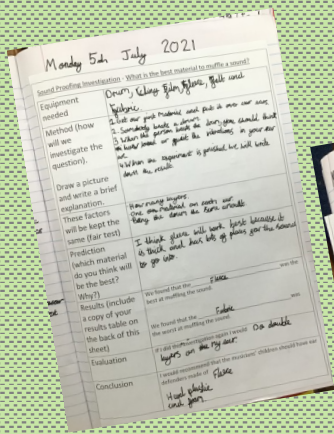 Monday 5th July 2021
Sound Proofing Investigation - What is the best material to muffle a sound?
Equipment needed
Drum, Cling film, Fleece, Felt and
Fabric.
Method (how
will we
investigate the
question).
Draw a picture
and write a brief
explanation.
1. Get our first material and put it over our ears
2. Somebody beats a drum
3. When the person beats the drum, you should think
in your ear
4. When the experiment is finished, we will write
down the results.
These factors
will be kept the
same (fair test)
How many layers
One material on each ear
Bang the drum the same amount
Prediction
(which material
do you think will
be the best?
Why?)
I think fleece will work best because it
is thick and has lots of places for the sound
to go into.
Results (include
a copy of your
results table on
the back of this
sheet)
We found that the Fleece was the
best at muffling the sound.
We found that the Fabric was
the worst at muffling the sound.
Evaluation
If I did the investigation again I would Do double
layers on the my ear.
Conclusion
I would recommend that the musicians' children should have ear
defenders made of Fleece
Hard plastic
and foam